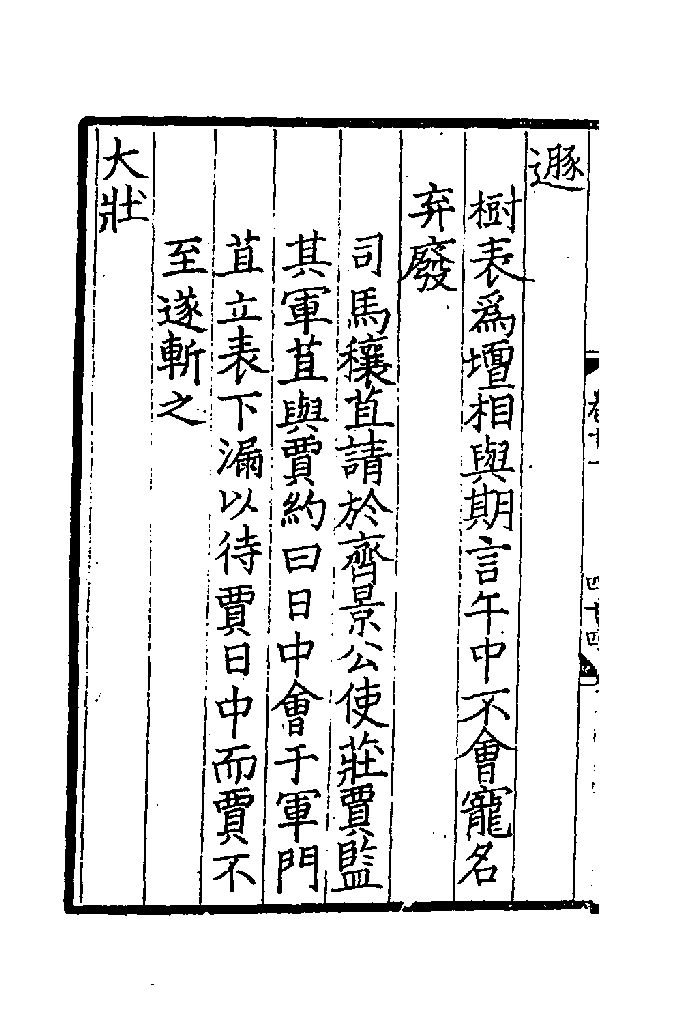 遯
樹表為壇相與期言午中不會寵名
弃廢
司馬穰苴請於齊景公使莊賈監
其軍苴與賈約曰日中會于軍門
苴立表下漏以待賈日中而賈不
至遂斬之
大壯